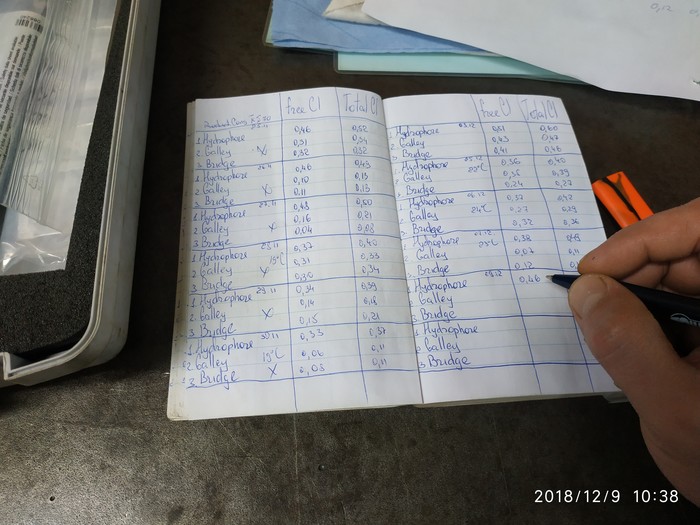 free Cl Total Cl
1. Hydrophore 0,46 0,52
2. Galley X 0,31 0,34
3. Bridge 0,32 0,32
1. Hydrophore 26.11 0,46 0,49
2. Galley X 0,10 0,13
3. Bridge 0,11 0,13
1. Hydrophore 27.11 0,43 0,50
2. Galley X 0,16 0,21
3. Bridge 0,04 0,08
1. Hydrophore 28.11 0,37 0,40
2. Galley 19°C 0,31 0,33
3. Bridge X 0,30 0,34
1. Hydrophore 29.11 0,34 0,39
2. Galley X 0,14 0,16
3. Bridge 0,15 0,21
1. Hydrophore 30.11 0,33 0,37
2. Galley 19°C 0,06 0,11
3. Bridge X 0,03 0,11
free Cl Total Cl
Hydrophore 03.12 0,60
Galley 0,43 0,47
Bridge 0,41 0,46
Hydrophore 0,36 0,40
Galley 0,35 0,39
Bridge 0,24 0,27
Hydrophore 0,37 0,42
Galley 24°C 0,27 0,29
Bridge 0,32 0,36
Hydrophore 0,38
Galley 0,07 0,11
Bridge 0,12
Hydrophore 09.12 0,46
2. Galley
3. Bridge
1. Hydrophore
2. Galley
3. Bridge
2018/12/9 10:38